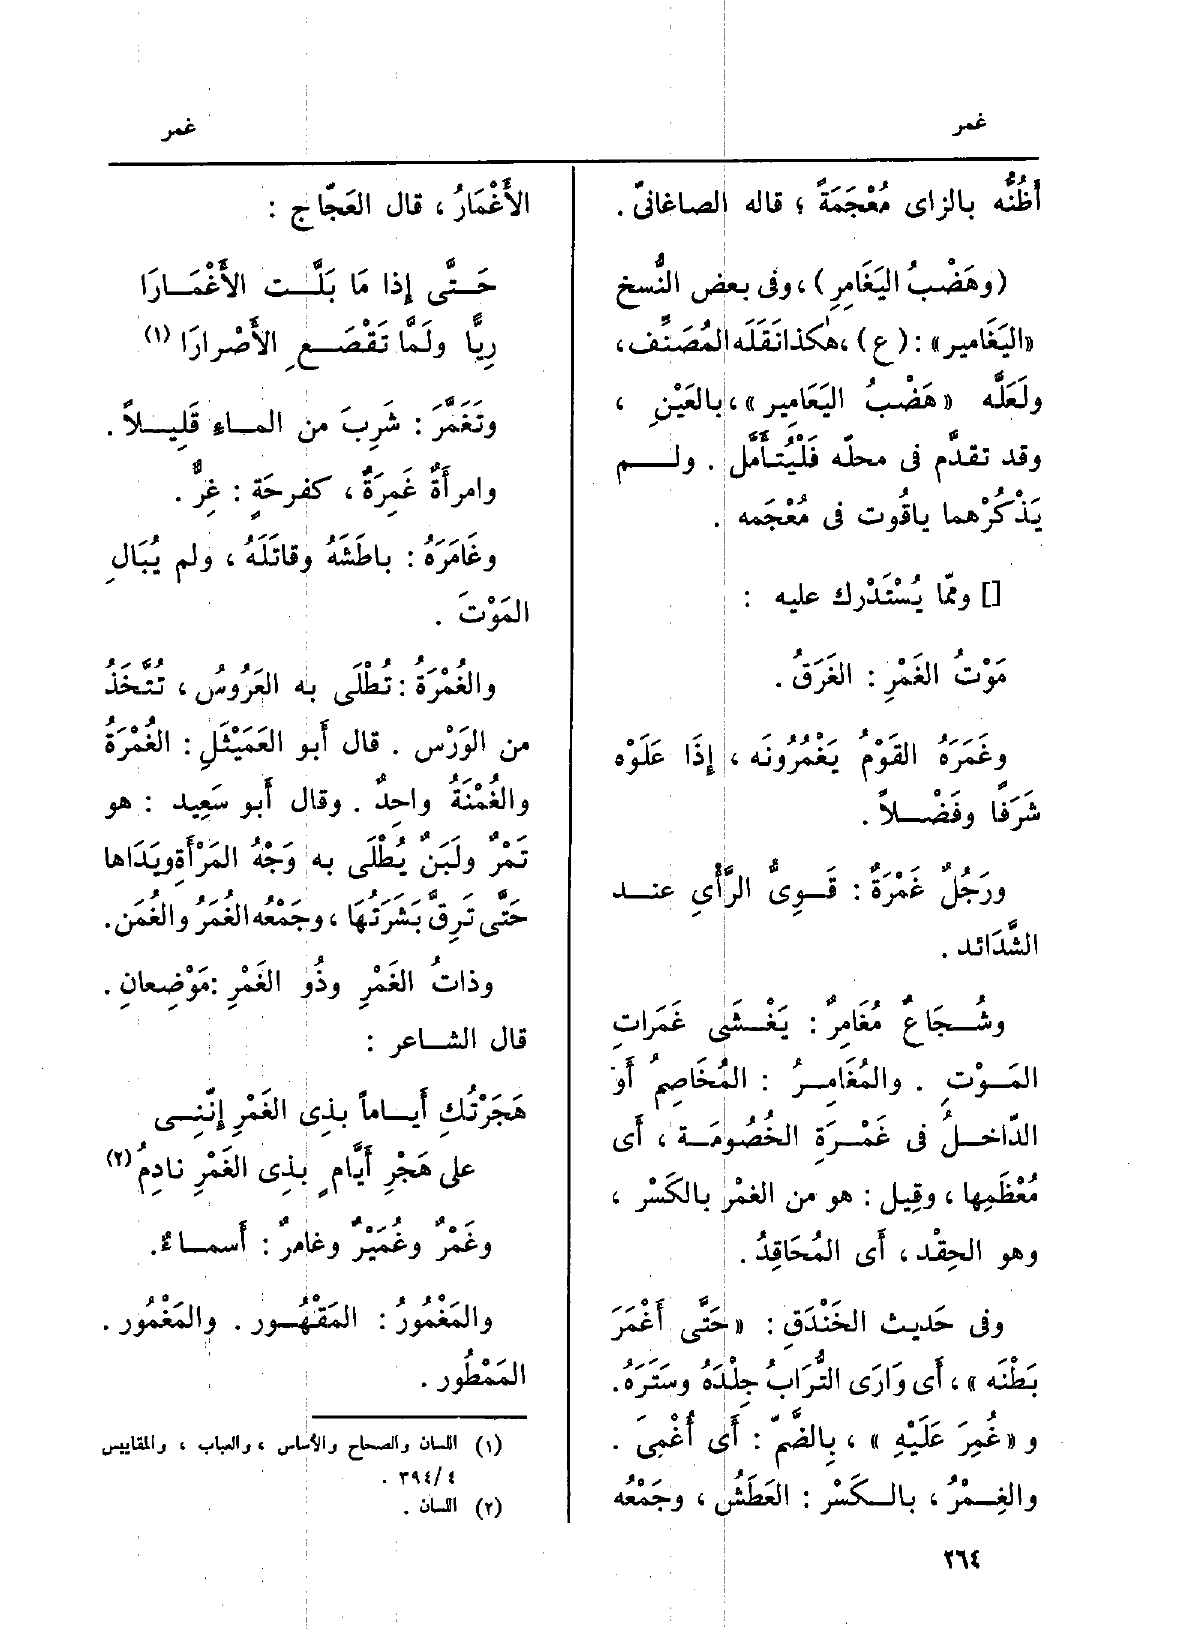 غمر
غمر
أَظُنُّه بالزاى مُعْجَمَةً ؛ قاله الصاغانىّ .
(وهَضْبُ اليَغَامِرِ) ، وفى بعض النُّسخ
«اليَغَامير» : (ع) ، هٰكذا نَقَلَه المُصَنِّف ،
ولَعَلَّه «هَضْبُ اليَعَامِير» ، بالعَيْنِ ،
وقد تقدَّم فى محلّه فَلْيُتَأَمَّل . ولــم
يَذْكُرْهما ياقُوت فى مُعْجَمه .
[] وممّا يُسْتَدْرك عليه :
مَوْتُ الغَمْرِ : الغَرَقُ .
وغَمَرَهُ القَوْمُ يَغْمُرُونَه ، إِذَا عَلَوْه
شَرَفًا وفَضْــلاً .
ورَجُلٌ غَمْرَةٌ : قَــوِىُّ الرَّأْىِ عنــد
الشَّدَائد .
وشُــجَاعٌ مُغَامِرٌ : يَغْــشَى غَمَراتِ
المَــوْتِ . والمُغَامِــرُ : المُخَاصِمُ أَو
الدّاخــلُ فى غَمْــرَةِ الخُصُومَــة ، أَى
مُعْظَمِها ، وقِيل : هو من الغمْر بالكَسْر ،
وهو الحِقْد ، أَى المُحَاقِدُ .
وفى حَديث الخَنْدَقِ : «حَتَّى أَغْمَرَ
بَطْنَه » ، أَى وَارَى التُّرَابُ جِلْدَهُ وسَتَرَهُ.
و «غُمِرَ عَلَيْهِ » ، بِالضَّمّ : أَى أُغْمِىَ .
والغِــمْرُ ، بالــكَسْر : العَطَشُ ، وجَمْعُه
الأَغْمَارُ ، قال العَجّاج :
حَــتَّى إِذا مَا بَلَّــت الأَغْمَــارَا
رِيًّا ولَمَّا تَقْصَــعِ الأَصْرارَا (١)
وتَغَمَّرَ : شَرِبَ من المــاء قَلِيــلاً .
وامرأَةٌ غَمِرَةٌ ، كفرحَةٍ : غِرٌّ .
وغَامَرَهُ : باطَشَهُ وقاتَلَهُ ، ولم يُبَالِ
المَوْتَ .
والغُمْرَةُ : تُطْلَى به العَرُوسُ ، تُتَّخَذُ
من الوَرْس . قال أَبو العَمَيْثَلِ : الغُمْرَةُ
والغُمْنَةُ واحِدٌ . وقال أَبو سَعِيد : هو
تَمْرٌ ولَبَنٌ يُطْلَى به وَجْهُ المَرْأَةِ ويَدَاها
حَتَّى تَرِقَّ بَشَرَتُهَا ، وجَمْعُه الغُمَرُ والغُمَن.
وذاتُ الغَمْرِ وذُو الغَمْرِ :مَوْضِعانِ .
قال الشــاعر :
هَجَرْتُكِ أَيــاماً بذِى الغَمْرِ إِنَّنِــى
على هَجْرِ أَيَّامٍ بِذِى الغَمْرِ نادِمُ (٢)
وغَمْرٌ وغُمَيْرٌ وغامِرٌ : أَسمــاءٌ.
والمَغْمُورُ : المَقْهُــور . والمَغْمُور .
المَمْطُور .
(١) اللسان والصحاح والأساس ، والعباب ، والمقاييس
٤ /٣٩٤ .
(٢) اللسان .
٢٦٤